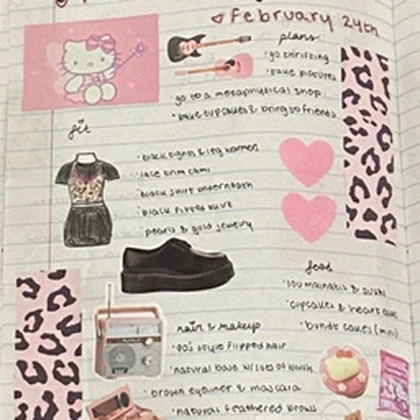 february 24th
plans
· go thrifting
· take pictures
go to a metaphysical shop
· bake cupcakes & bring to friends
fit
· black tights & leg warmers
· lace trim cami
· black shirt underneath
· black fitted skirt
· pearls & gold jewelry
food
& sushi
· cupcakes & heart cake
· bundt cakes (mini)
hair & makeup
· 90s style flipped hair
· natural base w/ lots of blush
· brown eyeliner & mascara
· natural feathered brows